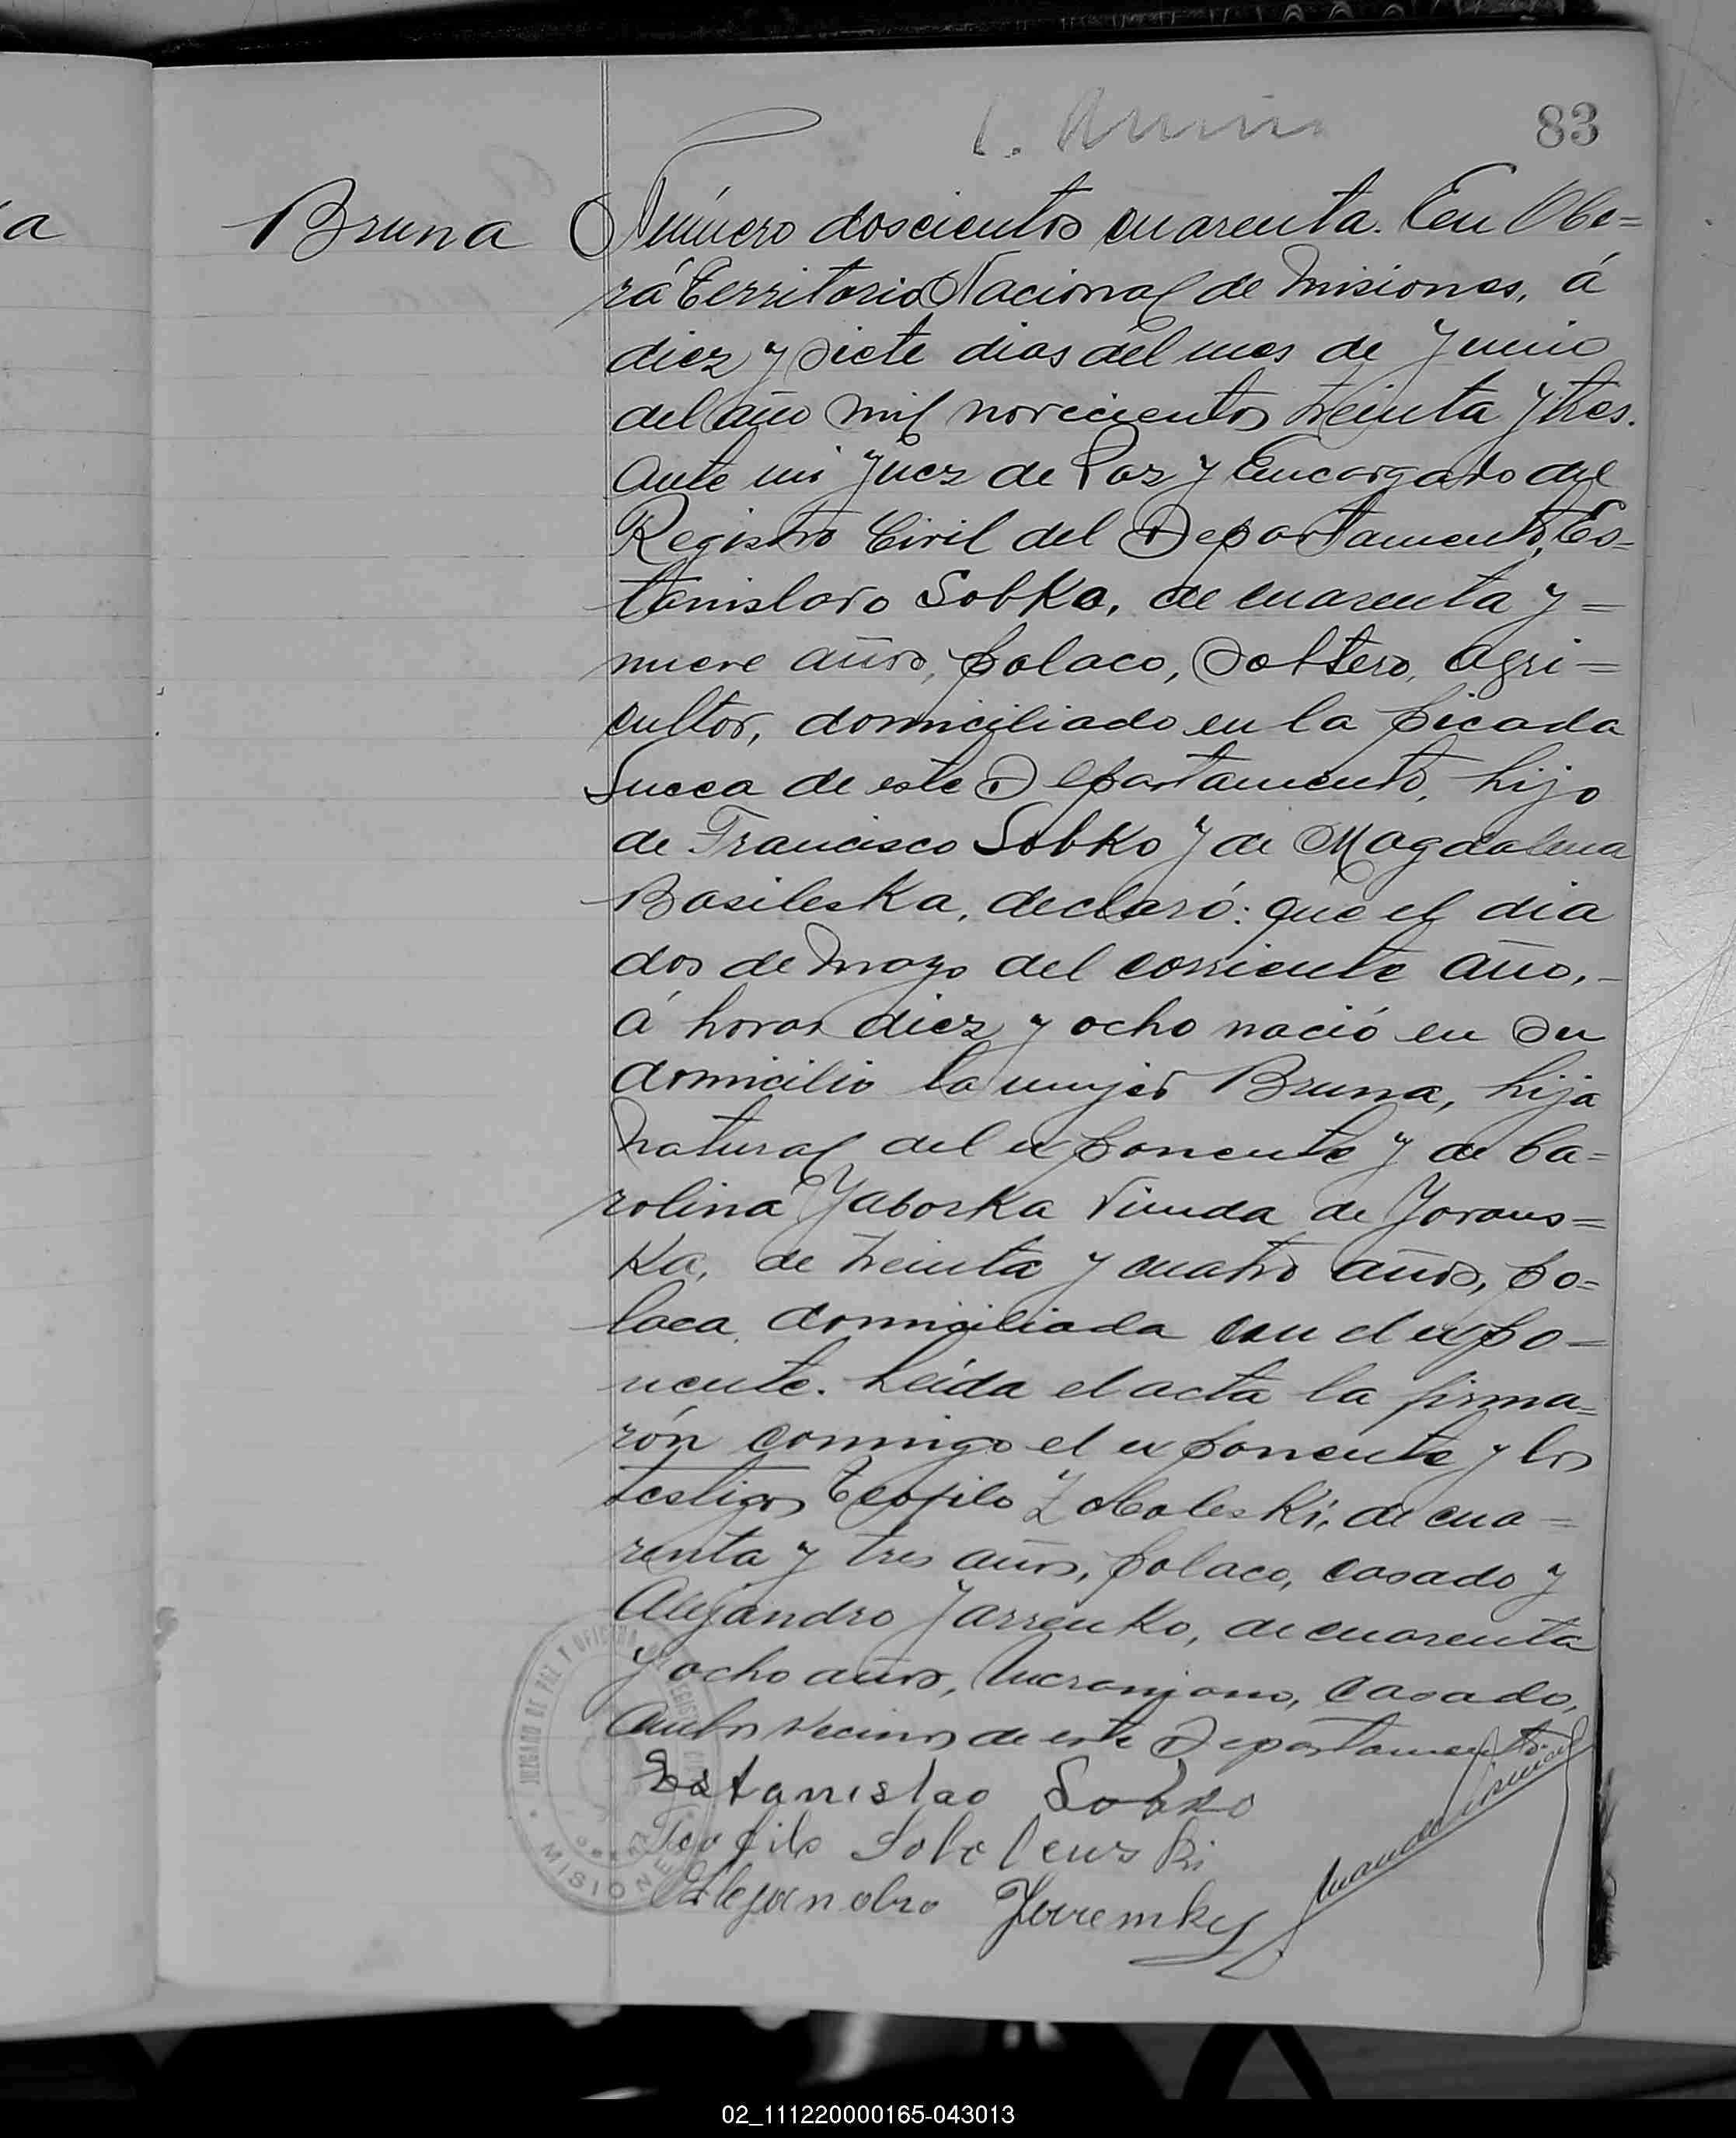 83
a
Bruna
Número doscientos cuarenta. En Obe=
rá Territorio Nacional de Misiones, á
diez y siete dias del mes de Junio
del año mil novecientos treinta y tres.
Ante mi Juez de Paz y Encargado del
Registro Civil del Departamento, Es=
tanislavo Sobko, de cuarenta y =
nueve años, polaco, soltero, agri=
cultor, domiciliado en la picada
Sueca de este Departamento, hijo
de Francisco Sobko y de Magdalena
Basileska, declaró: que el dia
dos de Mayo del corriente año,-
á horas diez y ocho nació en su
domicilio la mujer Bruna, hija
natural del exponente y de Ca=
rolina Yaborka viuda de Jorans=
ka, de treinta y cuatro años, po=
laca, domiciliada con el expo=
nente. Leida el acta la firma=
rón conmigo el exponente y los
testigos Teofilo Zoboleski, de cua=
renta y tres años, polaco, casado y
Alejandro Jarrenko, de cuarenta
y ocho años, Ucraniano, casado,
ambos vecinos de este Departamento.
Estanislao Sobko
Teofilo Sobolewski
Alejandro Jarremky
JUZGADO DE PAZ Y OFICINA DEL REGISTRO CIVIL
OBERA
MISIONES
02_111220000165-043013